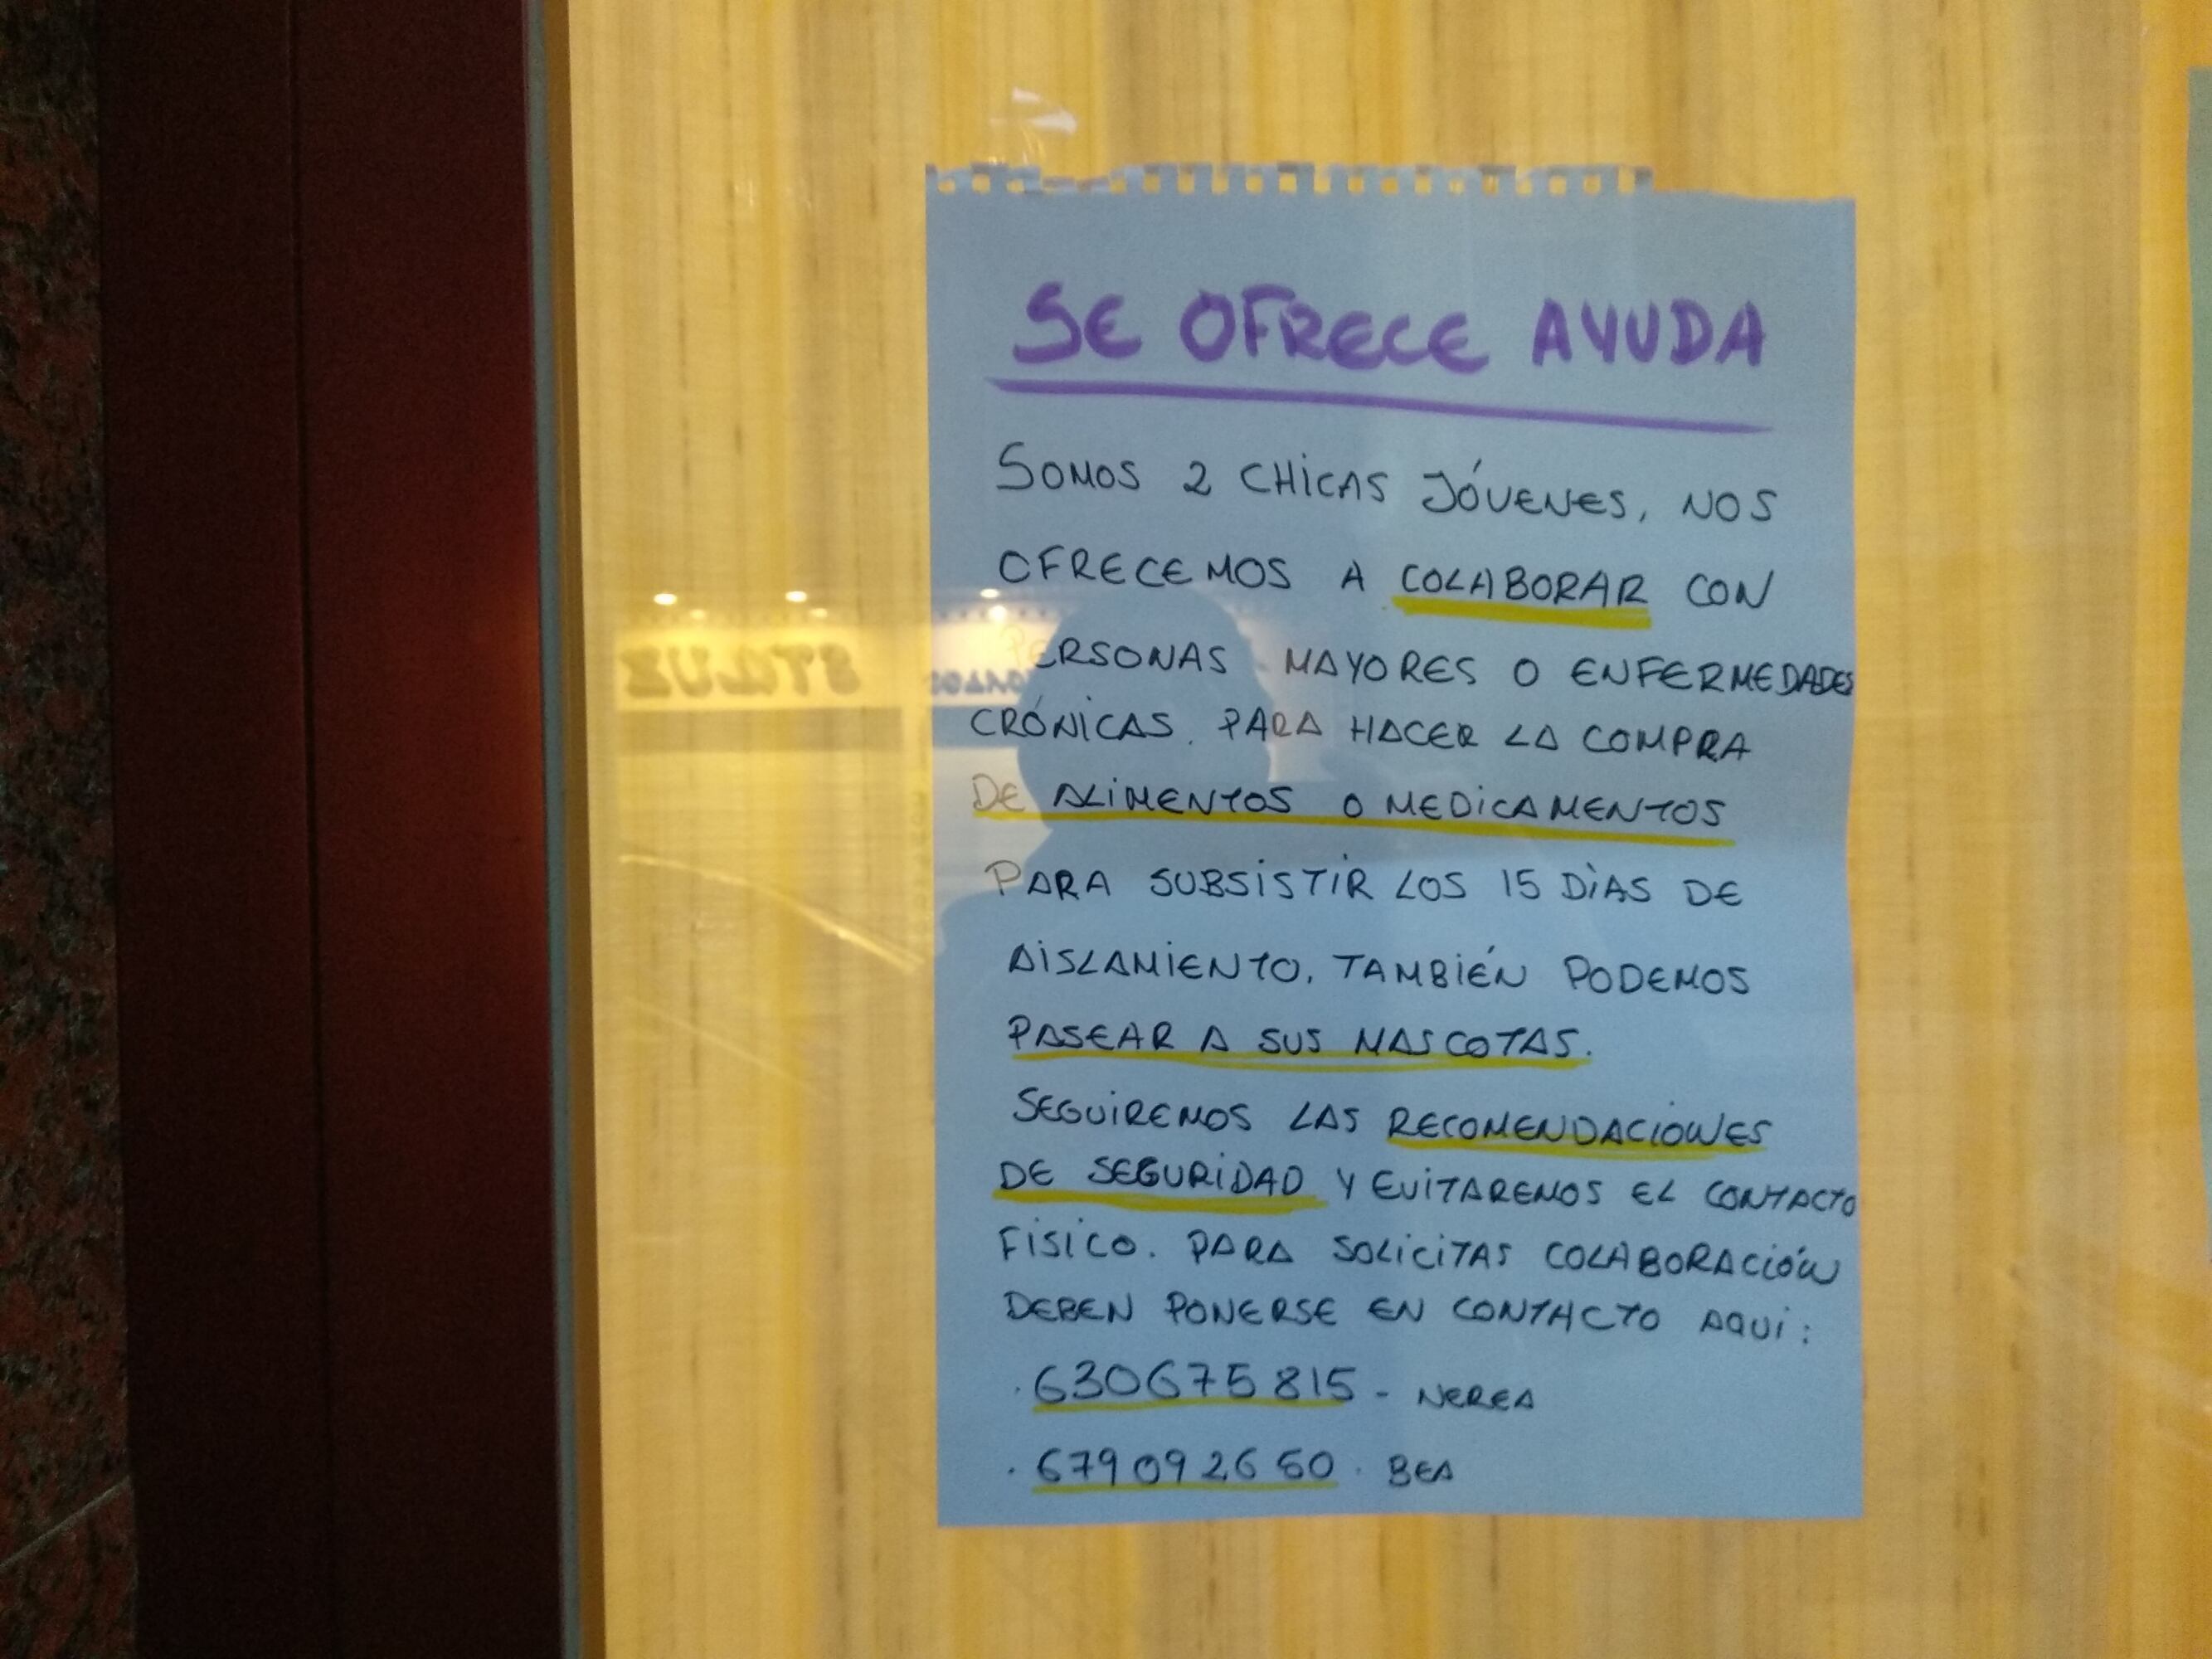 SE OFRECE AYUDA
SOMOS 2 CHICAS JÓVENES, NOS
OFRECEMOS A COLABORAR CON
PERSONAS MAYORES O ENFERMEDADES
CRÓNICAS. PARA HACER LA COMPRA
DE ALIMENTOS O MEDICAMENTOS
PARA SUBSISTIR LOS 15 DÍAS DE
AISLAMIENTO. TAMBIÉN PODEMOS
PASEAR A SUS MASCOTAS.
SEGUIREMOS LAS RECOMENDACIONES
DE SEGURIDAD Y EVITAREMOS EL CONTACTO
FÍSICO. PARA SOLICITAS COLABORACIÓN
DEBEN PONERSE EN CONTACTO AQUÍ:
· 630675815 - NEREA
· 679092660 · BEA